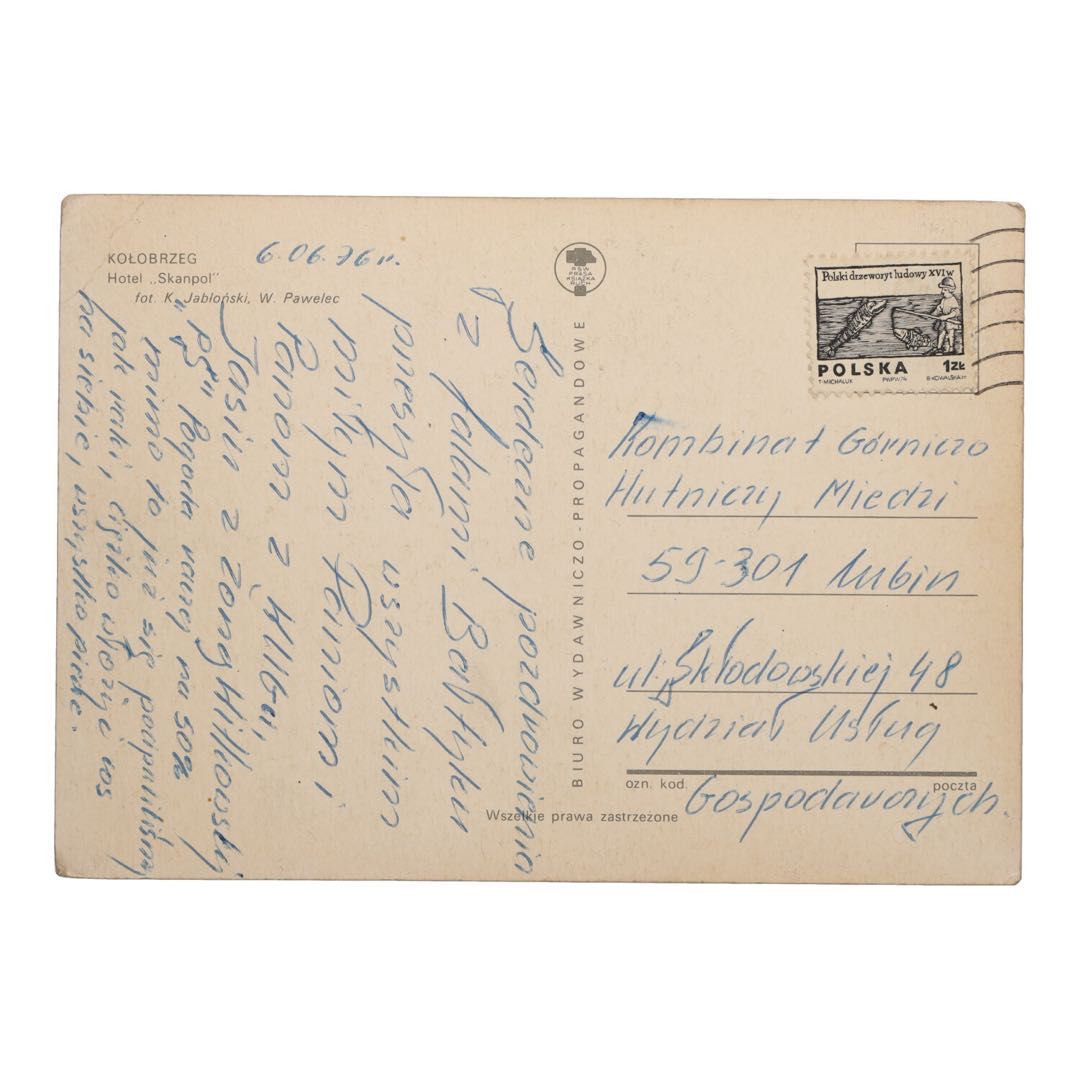 KOŁOBRZEG
Hotel „Skanpol"
fot. K. Jabłoński, W. Pawelec
6.06.76 r.
Serdeczne pozdrowienia
z falami Bałtyku
przesyła wszystkim
miłym Paniom i
Panom z
Jasiu z żoną Witkowscy
"PS" Pogoda raczej na 50%
mimo to już się poopaliliśmy
jak raki, ciężko włożyć coś
na siebie, wszystko piecze.
RSW
PRASA
KSIĄŻKA
RUCH
BIURO WYDAWNICZO-PROPAGANDOWE
Polski drzeworyt ludowy XVI w
POLSKA 1ZŁ
T. MICHALUK PWPW/74 B. KOWALSKA sc
Kombinat Górniczo
Hutniczy Miedzi
59-301 Lubin
ul. Skłodowskiej 48
Wydział Usług
ozn. kod. poczta
Gospodarczych.
Wszelkie prawa zastrzeżone